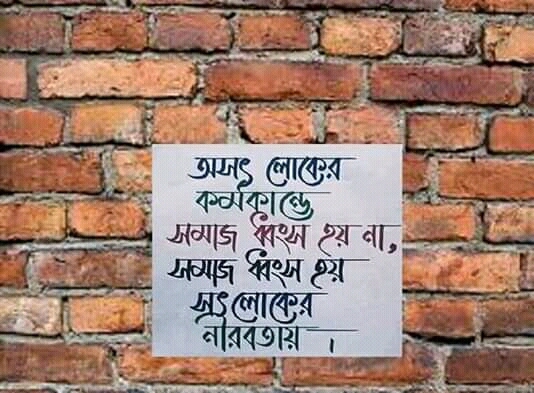 অসৎ লোকের
কর্মকান্ডে
সমাজ ধ্বংস হয় না,
সমাজ ধ্বংস হয়
সৎ লোকের
নীরবতায় ।